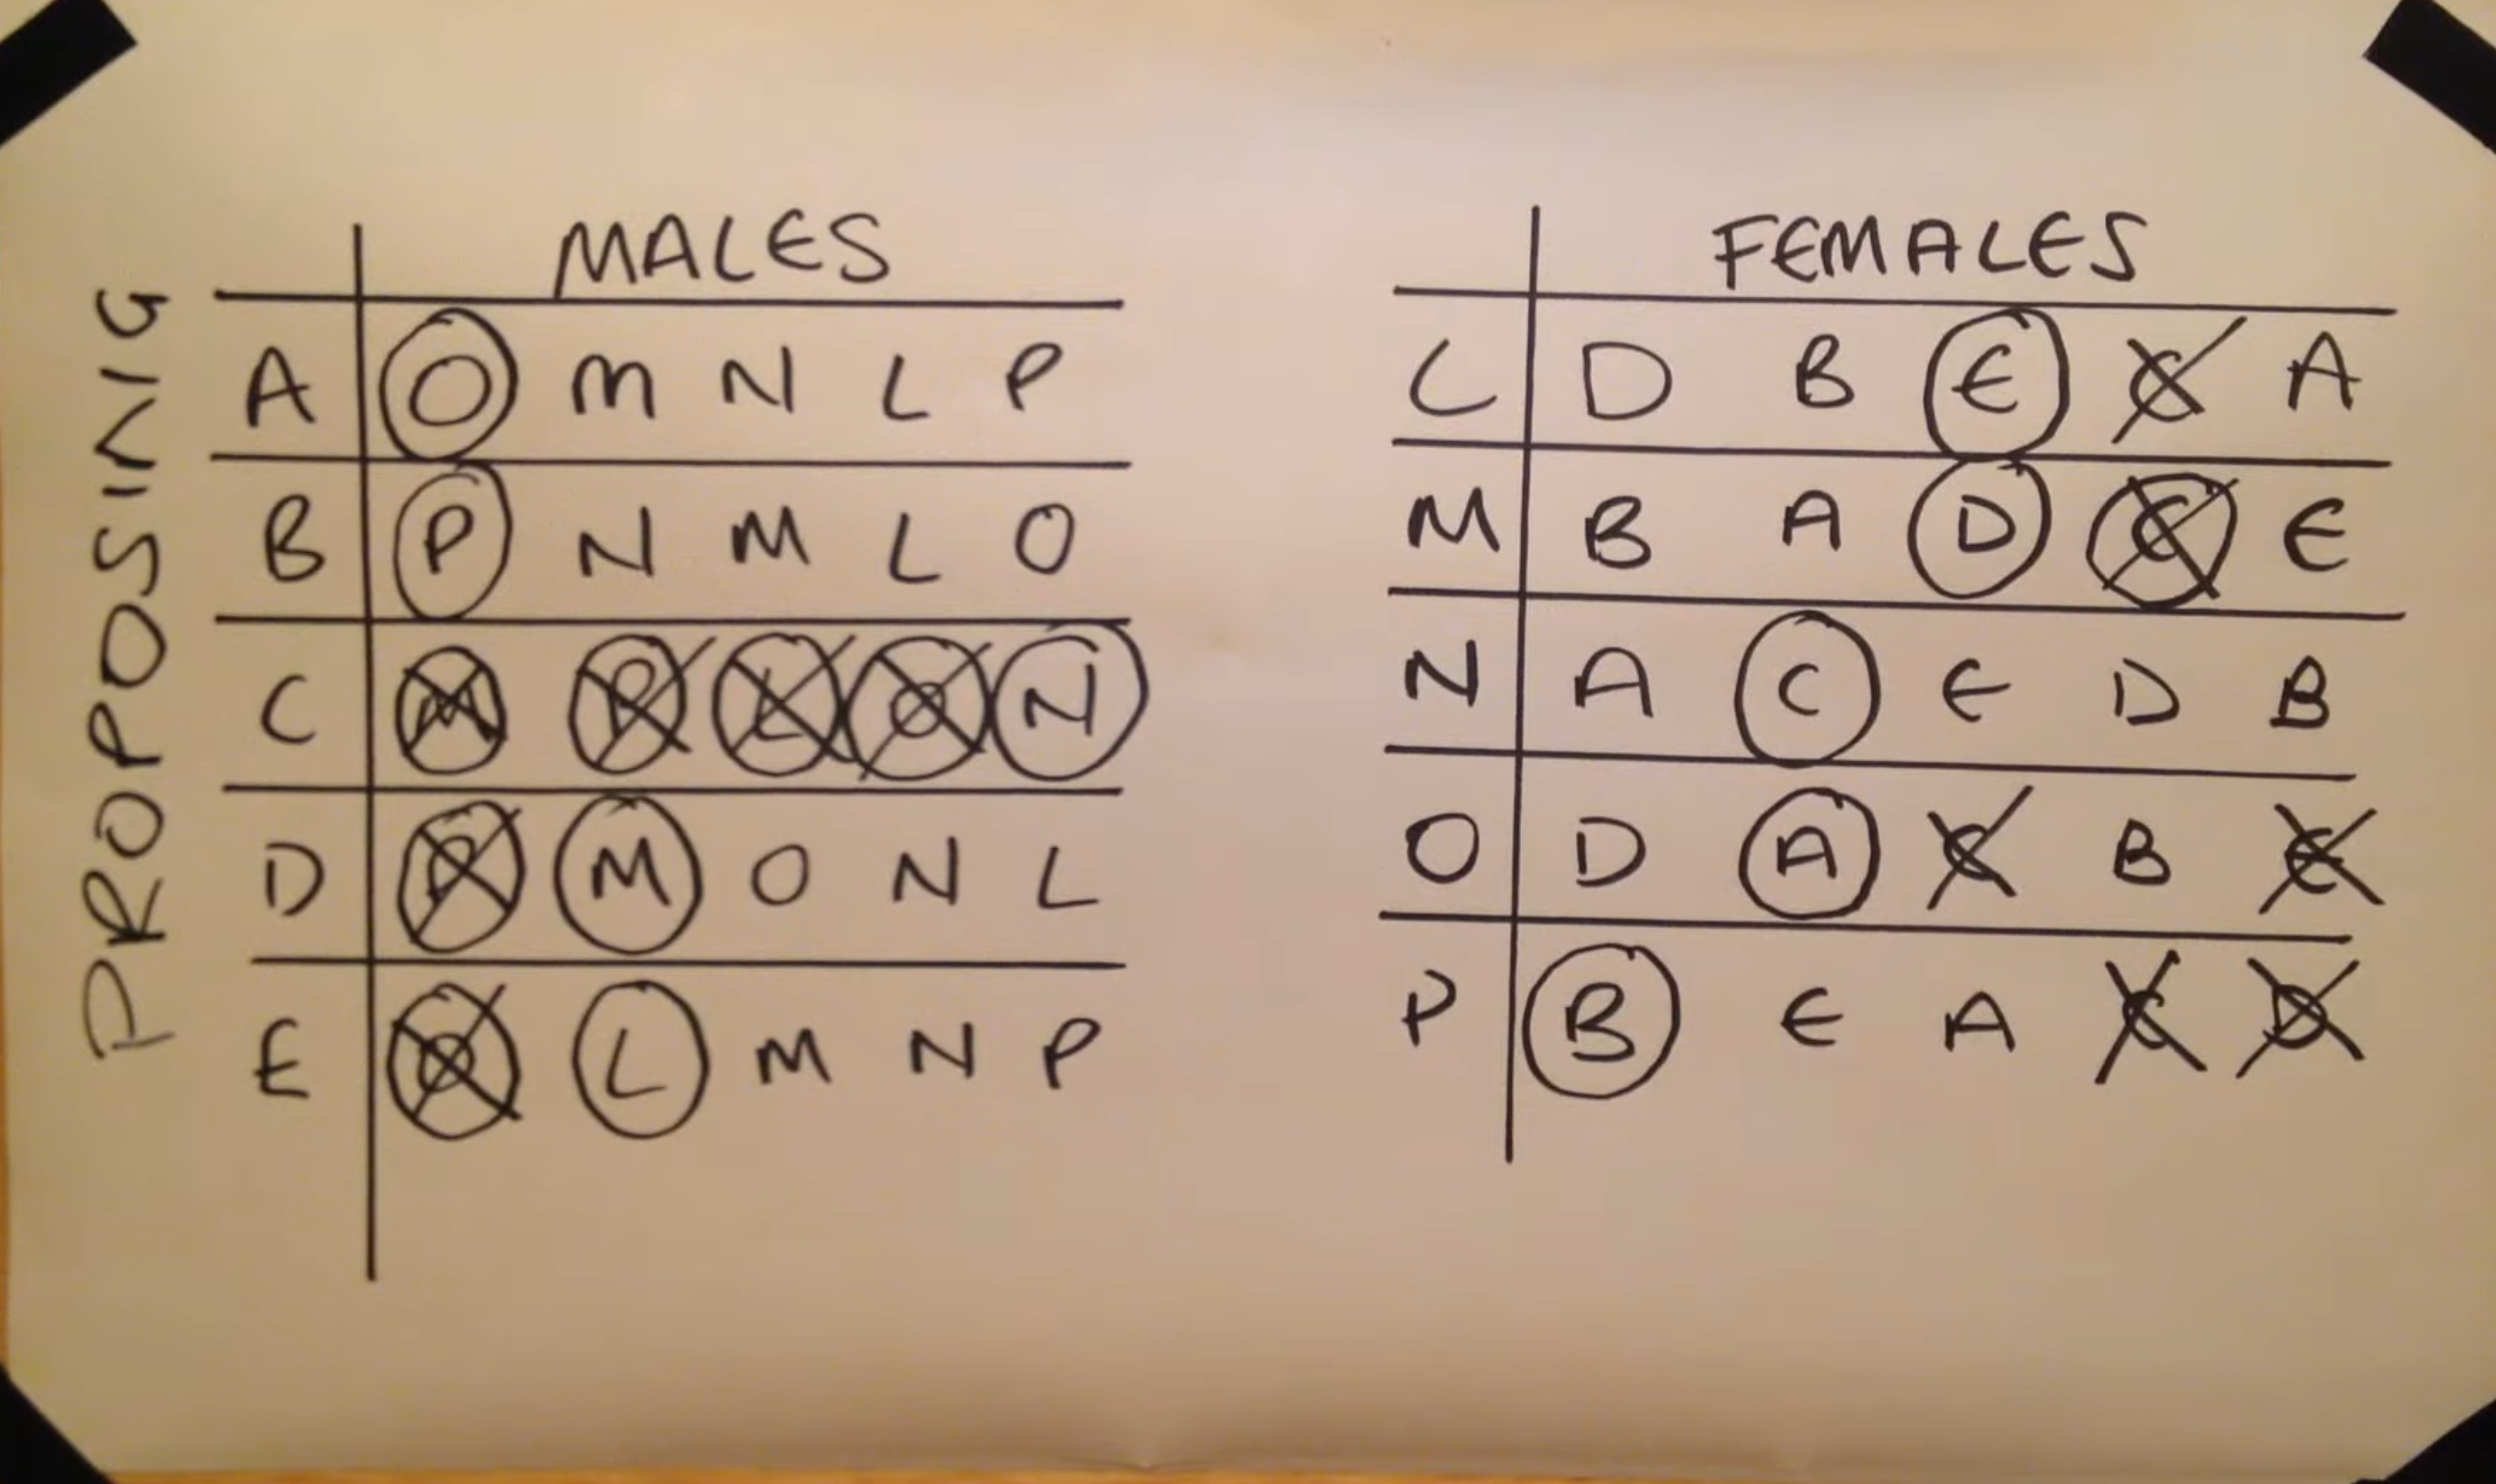 PROPOSING
MALES
A O M N L P
B P N M L O
C M P L O N
D P M O N L
E O L M N P
FEMALES
L D B E C A
M B A D C E
N A C E D B
O D A C B E
P B E A C D